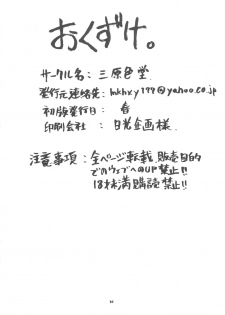 おくずけ。
サークル名：三原色堂
発行元連絡先：mkhxy199@yahoo.co.jp
初版発行日：春
印刷会社：日光企画様
注意事項：全ページ転載、販売目的
でのウェブへのUP禁止!!
18才未満購読禁止!!